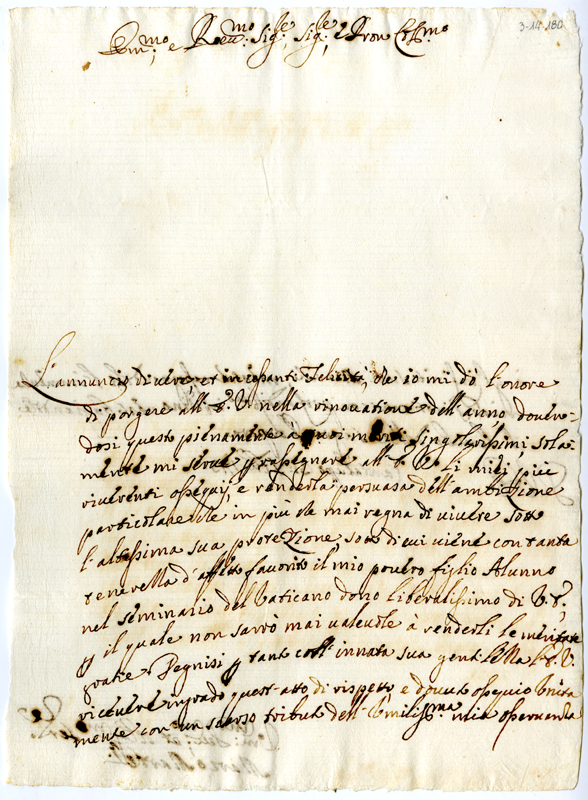 3-14-180
Em:mo e Reu:mo Sig:re Sig:re e Pron Col:mo
L'annuncio di uere, et incessanti Felicità, che io mi dò l'onore
di porgere all'E. V. nella rinouatione dell'anno, douen-
dosi questo pienamente à suoi meriti singolarissimi, sola-
mente mi serue p rassegnare all'E. V. li miei più
riuerenti ossequij, e renderla persuasa dell'ambitione
particolare che in più che mai regna di uiuere sotto
l'altissima sua protezione, sotto di cui uiene con tanta
tenerezza d'affetto fauorito il mio pouero figlio Alunno
nel seminario del Vaticano dono liberalissimo di V. E.,
p il quale non sarrò mai valeuole à renderli le meritate
gratie. Degnisi p tanto coll'innata sua gentilezza l'E. V.
riceuere in grado quest'atto di rispetto, e douuto ossequio unita
mente con un scarso tributo dell'Umiliss:ma mia osseruanza